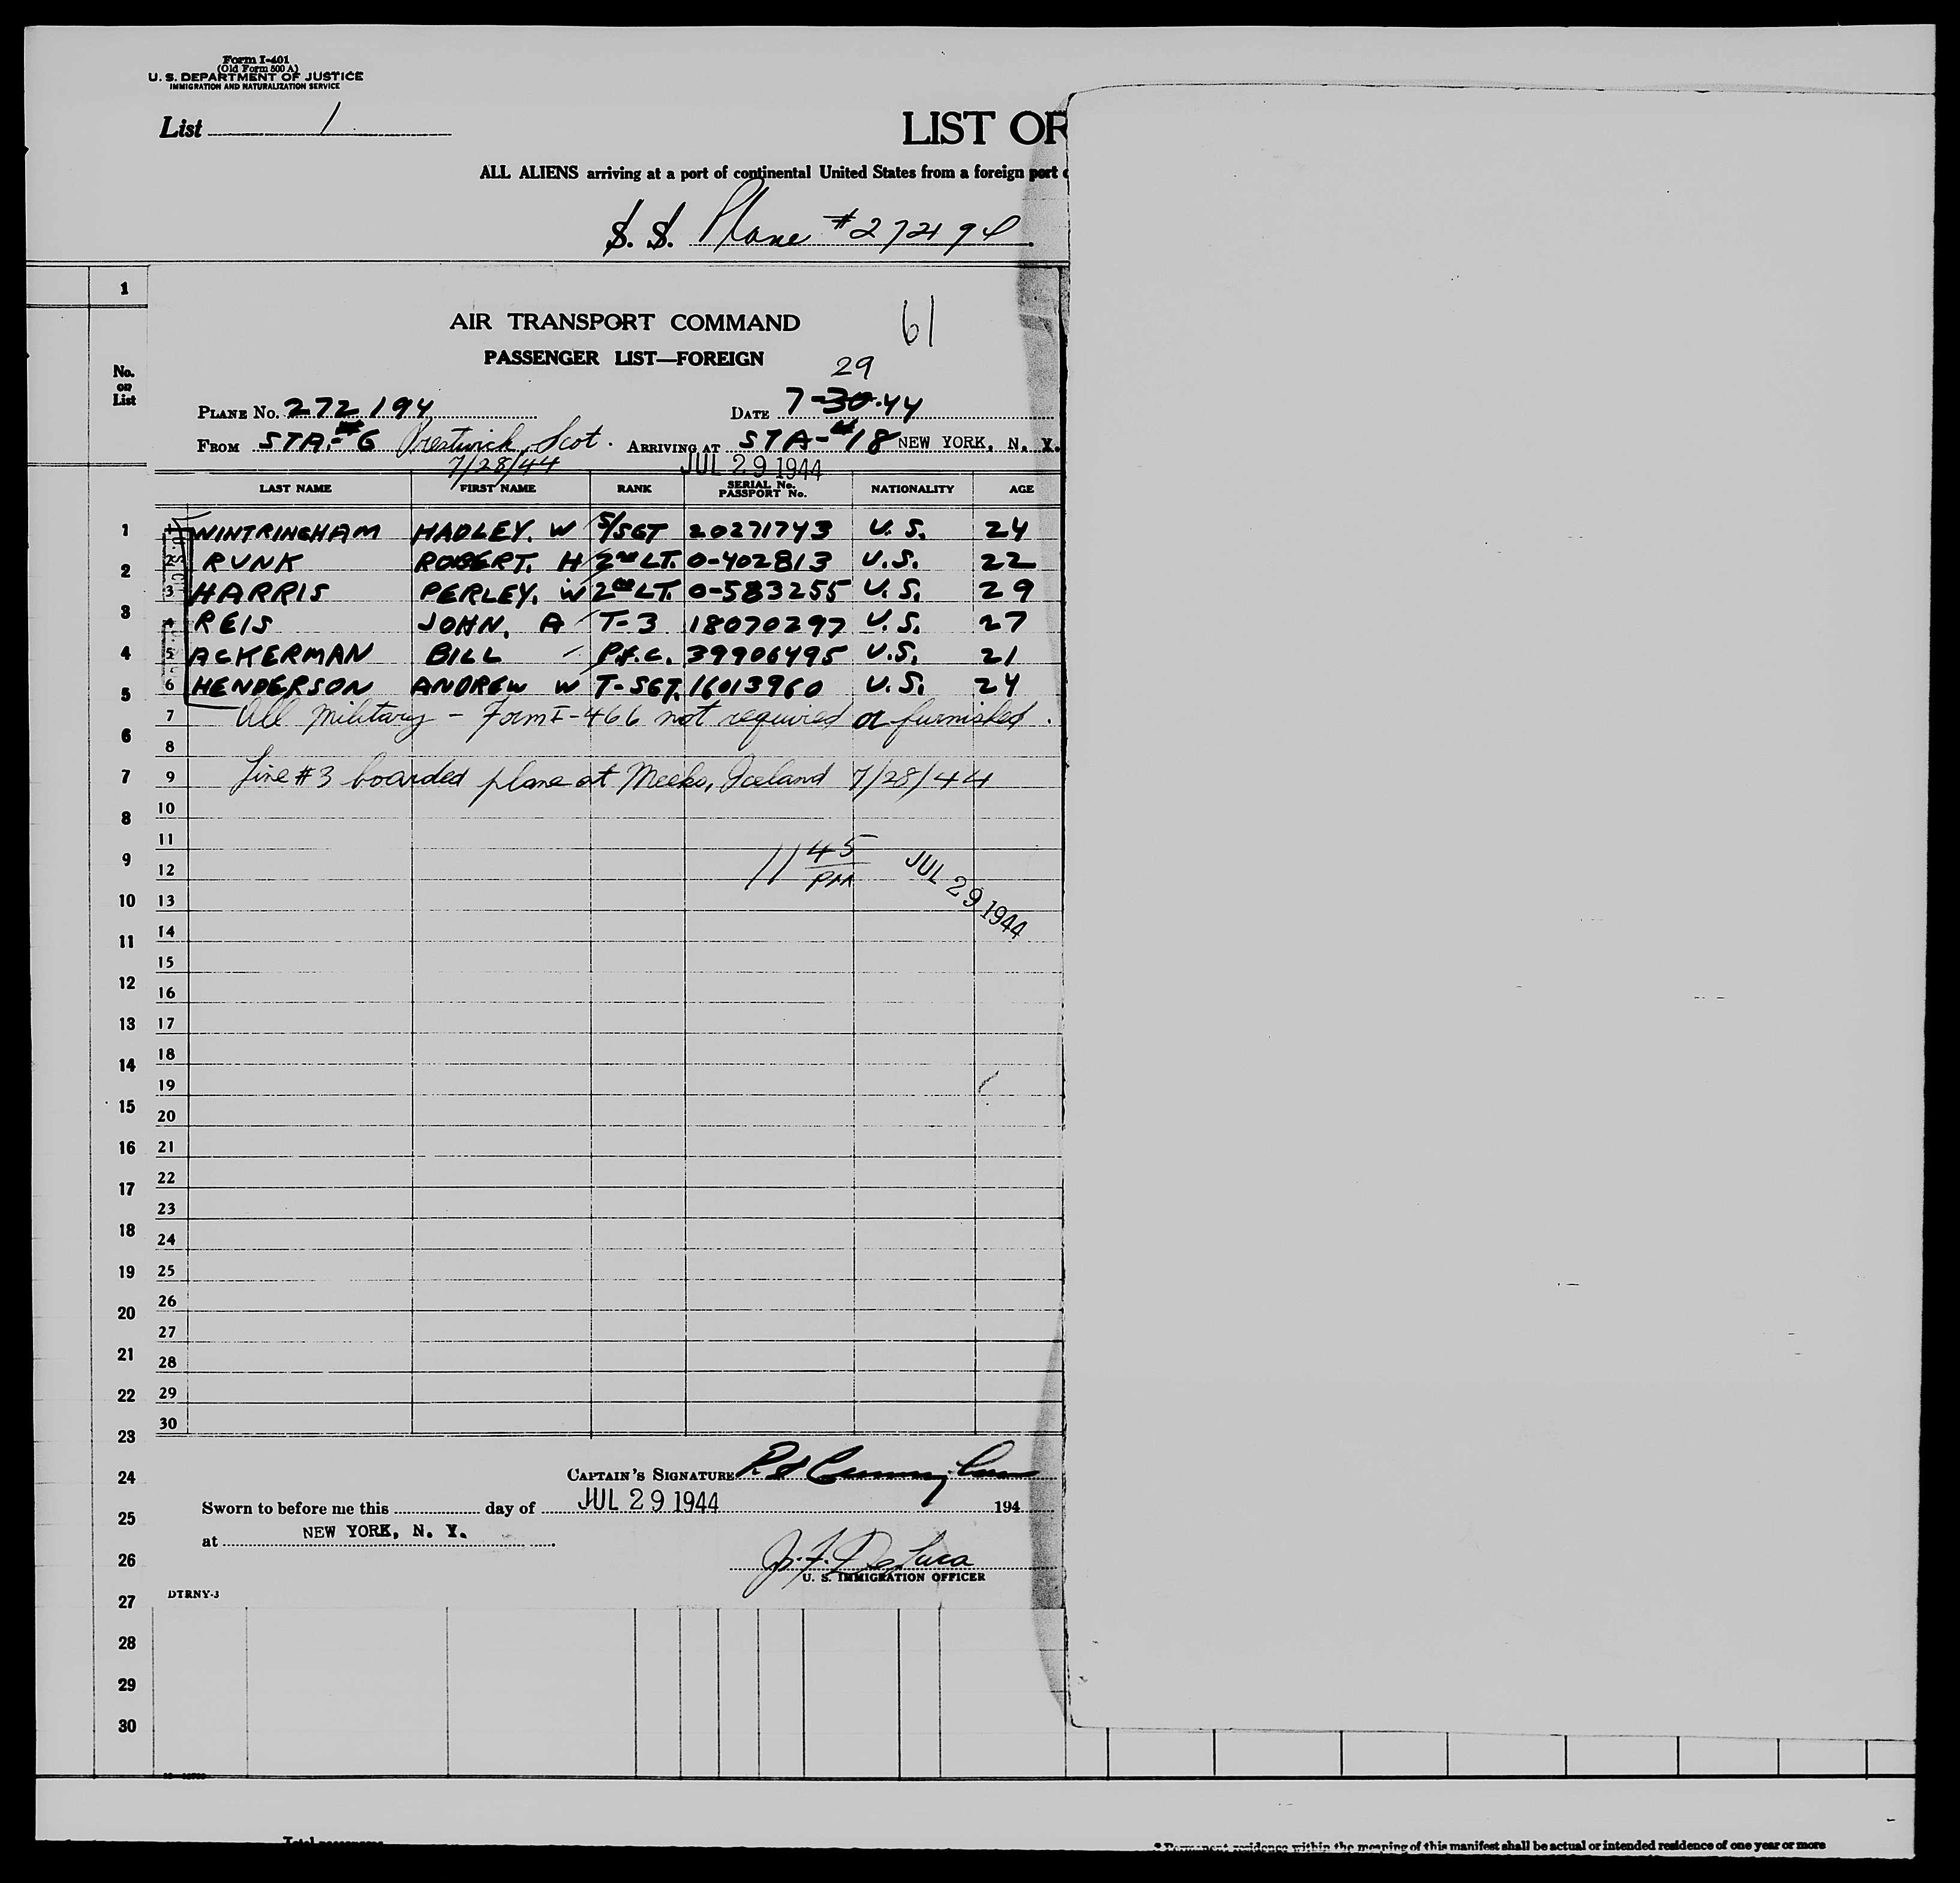 Form I-401
(Old Form 500 A)
U. S. DEPARTMENT OF JUSTICE
IMMIGRATION AND NATURALIZATION SERVICE
List 1
LIST OF
ALL ALIENS arriving at a port of continental United States from a foreign port
S. S. Plane #272194
1
No.
on
List
AIR TRANSPORT COMMAND
61
PASSENGER LIST—FOREIGN
29
PLANE No. 272194 DATE 7-30-44
FROM STA-#6 Prestwick, Scot. ARRIVING AT STA-#18 NEW YORK, N. Y.
7/28/44 JUL 29 1944
LAST NAME FIRST NAME RANK SERIAL No. PASSPORT No. NATIONALITY AGE
1 1 WINTRINGHAM HADLEY. W S/SGT 20271743 U.S. 24
2 2 RUNK ROBERT. H 2nd LT. 0-402813 U.S. 22
3 HARRIS PERLEY. W 2nd LT. 0-583255 U.S. 29
3 4 REIS JOHN, A T-3 18070297 U.S. 27
4 5 ACKERMAN BILL P.f.c. 39906495 U.S. 21
5 6 HENDERSON ANDREW W T-SGT. 16013960 U.S. 24
7 All military - Form I-466 not required or furnished.
6
8
7 9 Line #3 boarded plane at Meeks, Iceland 7/28/44
10
8
11
9 12 11 45 PM JUL 29 1944
10 13
11 14
15
12 16
13 17
18
14
19
15 20
16 21
22
17
23
18 24
19 25
26
20
27
21 28
22 29
30
23
24 CAPTAIN'S SIGNATURE
25 Sworn to before me this day of JUL 29 1944 194
at NEW YORK, N. Y.
26 J. F. DeLuca
U. S. IMMIGRATION OFFICER
27 DTRNY-3
28
29
30
Total passengers
* Permanent residence within the meaning of this manifest shall be actual or intended residence of one year or more